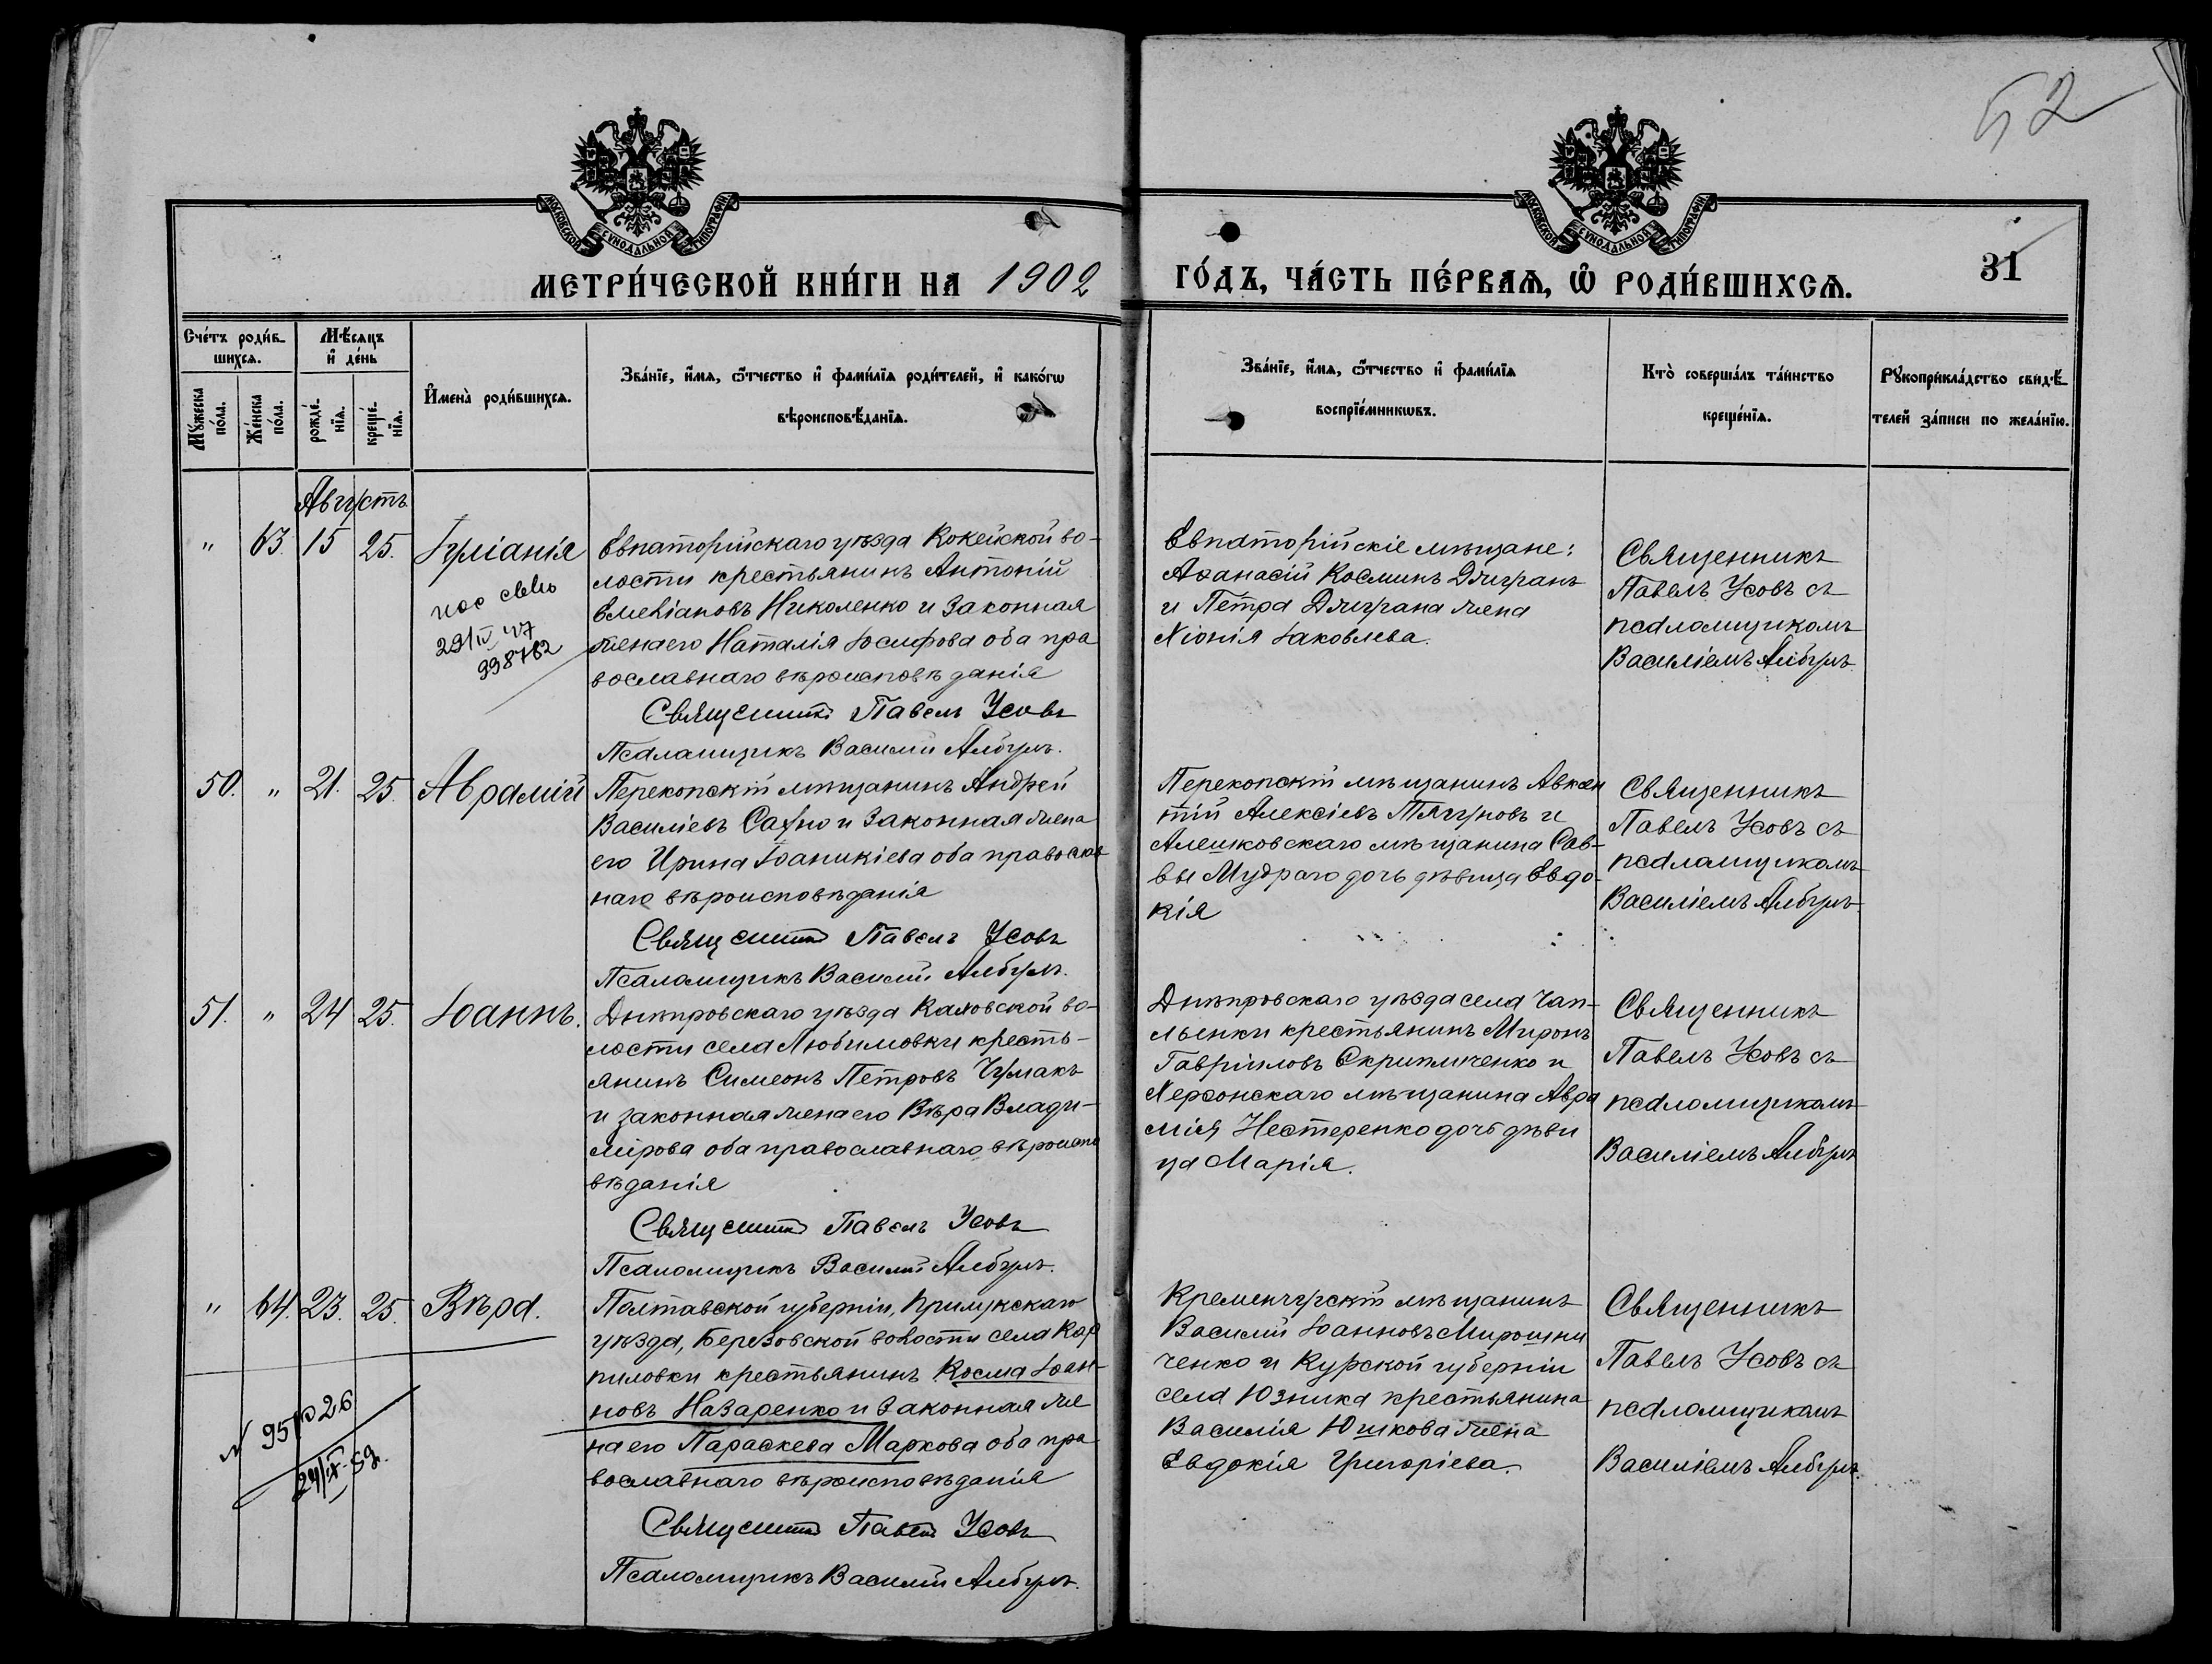 52
МОСКОВСКОЙ СѴНОДАЛЬНОЙ ТИПОГРАФІИ
МОСКОВСКОЙ СѴНОДАЛЬНОЙ ТИПОГРАФІИ
МЕТРИ́ЧЕСКОЙ КНИ́ГИ НА 1902
ГО́ДЪ, ЧА́СТЬ ПЕ́РВАѦ, Ѡ҆ РОДИ́ВШИХСѦ.
31
Сче́тъ роди́в-
шихсѧ.
Мꙋ́жеска по́ла.
Же́нска по́ла.
Мѣ́сѧцъ
и҆ де́нь
рожде́-
нїѧ.
креще́-
нїѧ.
И҆мена̀ роди́вшихсѧ.
Зва́нїе, и҆́мѧ, ѻ҆́тчество и҆ фами́лїѧ роди́телей, и҆ како́гѡ
вѣроисповѣ́данїѧ.
Зва́нїе, и҆́мѧ, ѻ҆́тчество и҆ фами́лїѧ
воспрїе́мникѡвъ.
Кто̀ соверша́лъ та́инство
креще́нїѧ.
Рꙋкоприкла́дство свидѣ́-
телей за́писи по жела́нїю.
Августъ
" 63. 15 25. Іуліанія
29/IV 47
998782
Евпаторійскаго уѣзда Кокейской во-
лости крестьянинъ Антоній
Емеліановъ Николенко и законная
жена его Наталія Іосифова оба пра
вославнаго вѣроисповѣданія
Священникъ Павелъ Усовъ
Псаломщикъ Василій Албулъ.
Евпаторійскіе мѣщане:
Аѳанасій Косминъ Дмигранъ
и Петра Дмиграна жена
Хіонія Іаковлева.
Священникъ
Павелъ Усовъ съ
псаломщикомъ
Василіемъ Албулъ.
50. " 21. 25. Аврамій
Перекопскій мѣщанинъ Андрей
Василіевъ Сахно и законная жена
его Ирина Іоаникіева оба православ
наго вѣроисповѣданія
Священникъ Павелъ Усовъ
Псаломщикъ Василій Албулъ.
Перекопскій мѣщанинъ Авксен
тій Алексіевъ Тягуновъ и
Алешковскаго мѣщанина Сав-
вы Мудраго дочь дѣвица Евдо-
кія
Священникъ
Павелъ Усовъ съ
псаломщикомъ
Василіемъ Албулъ.
51. " 24 25. Іоаннъ.
Днѣпровскаго уѣзда Каховской во-
лости села Любимовки кресть-
янинъ Симеонъ Петровъ Чумакъ
и законная жена его Вѣра Влади-
мірова оба православнаго вѣроиспо
вѣданія
Священникъ Павелъ Усовъ
Псаломщикъ Василій Албулъ.
Днѣпровскаго уѣзда села Чап-
льенки крестьянинъ Миронъ
Гавріиловъ Скрипниченко и
Херсонскаго мѣщанина Авра
мія Нестеренко дочь дѣви
ца Марія.
Священникъ
Павелъ Усовъ съ
псаломщикомъ
Василіемъ Албулъ
" 64. 23. 25. Вѣра.
Полтавской губерніи, Прилукскаго
уѣзда, Березовской волости села Кар
пиловки крестьянинъ Косма Іоан-
новъ Назаренко и законная же
на его Параскева Маркова оба пра
вославнаго вѣроисповѣданія
Священникъ Павелъ Усовъ
Псаломщикъ Василій Албулъ.
Кременчугскій мѣщанинъ
Василій Іоанновъ Мирошни
ченко и Курской губерніи
села Юзника крестьянина
Василія Юшкова жена
Евдокія Григоріева.
Священникъ
Павелъ Усовъ съ
псаломщикомъ
Василіемъ Албулъ.